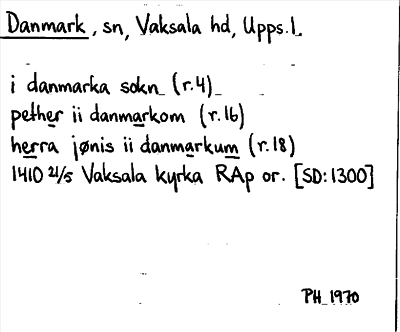 Danmark, sn, Vaksala hd, Upps.l.
i danmarka sokn (r.4)
pether ii danmarkom (r.16)
herra jønis ii danmarkum (r.18)
1410 21/5 Vaksala kyrka RAp or. [SD:1300]
PH 1970